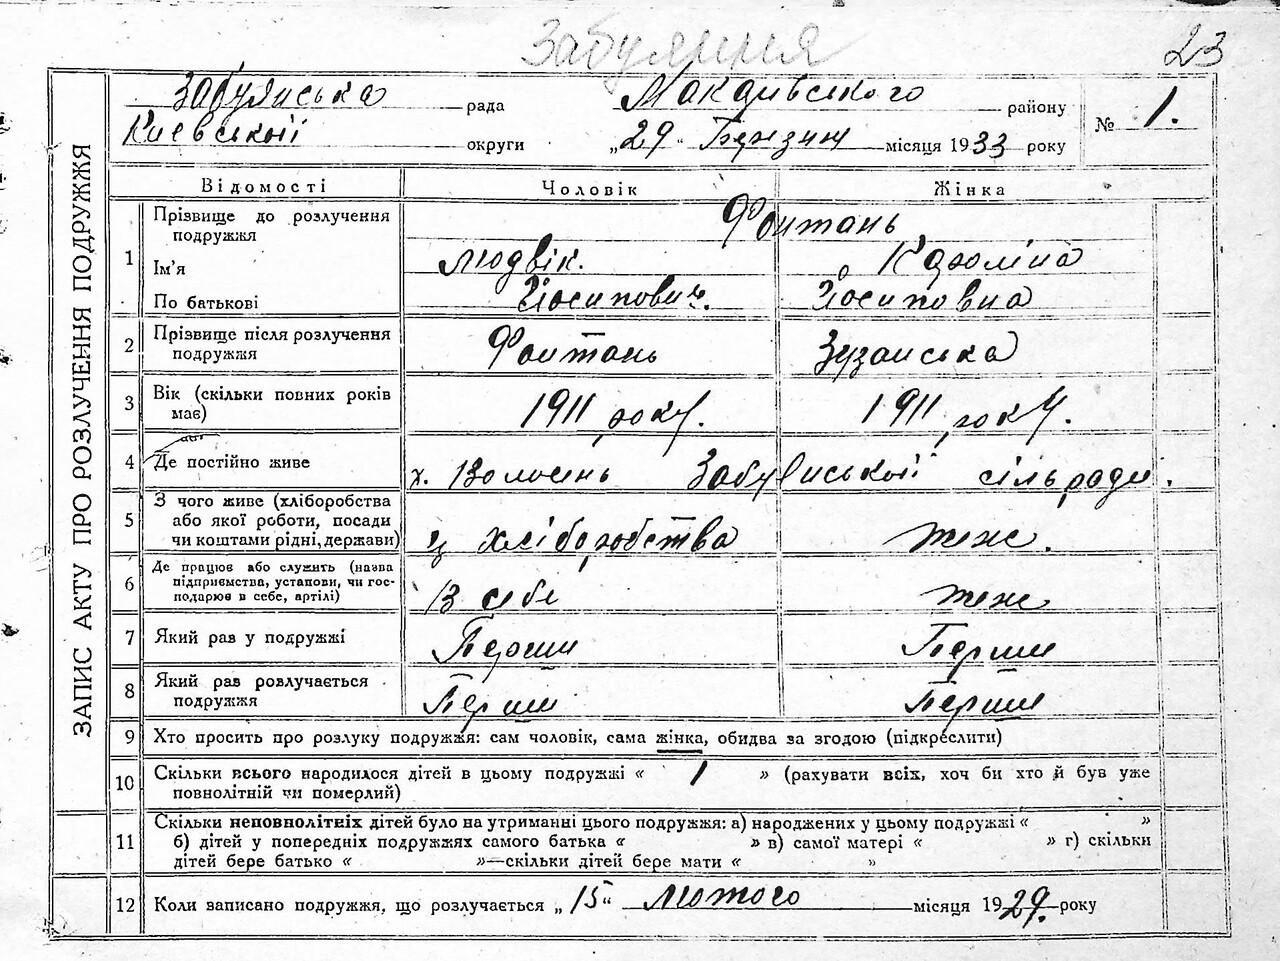 Забуяння
23
ЗАПИС АКТУ ПРО РОЗЛУЧЕННЯ ПОДРУЖЖЯ
Забуянська рада Макарівського району
Киевської округи „29" Березня місяця 1933 року № 1.
Відомості Чоловік Жінка
1 Прізвище до розлучення подружжя Фонтань
Ім'я Людвік. Кароліна
По батькові Йосипович. Йосиповна
2 Прізвище після розлучення подружжя Фонтань Зузанська
3 Вік (скільки повних років має) 1911 року. 1911 року.
4 Де постійно живе х. Волосень Забуянської сільради.
5 З чого живе (хліборобства або якої роботи, посади чи коштами рідні, держави) з хліборобства теж.
6 Де працює або служить (назва підприємства, установи, чи господарює в себе, артілі) В себе теж
7 Який раз у подружжі Перши Перши
8 Який раз розлучається подружжя Перши Перши
9 Хто просить про розлуку подружжя: сам чоловік, сама жінка, обидва за згодою (підкреслити)
10 Скільки всього народилося дітей в цьому подружжі « 1 » (рахувати всіх, хоч би хто й був уже
повнолітній чи померлий)
11 Скільки неповнолітніх дітей було на утриманні цього подружжя: а) народжених у цьому подружжі « »
б) дітей у попередніх подружжях самого батька « » в) самої матері « » г) скільки
дітей бере батько « »—скільки дітей бере мати « »
12 Коли записано подружжя, що розлучається „15" лютого місяця 1929. року